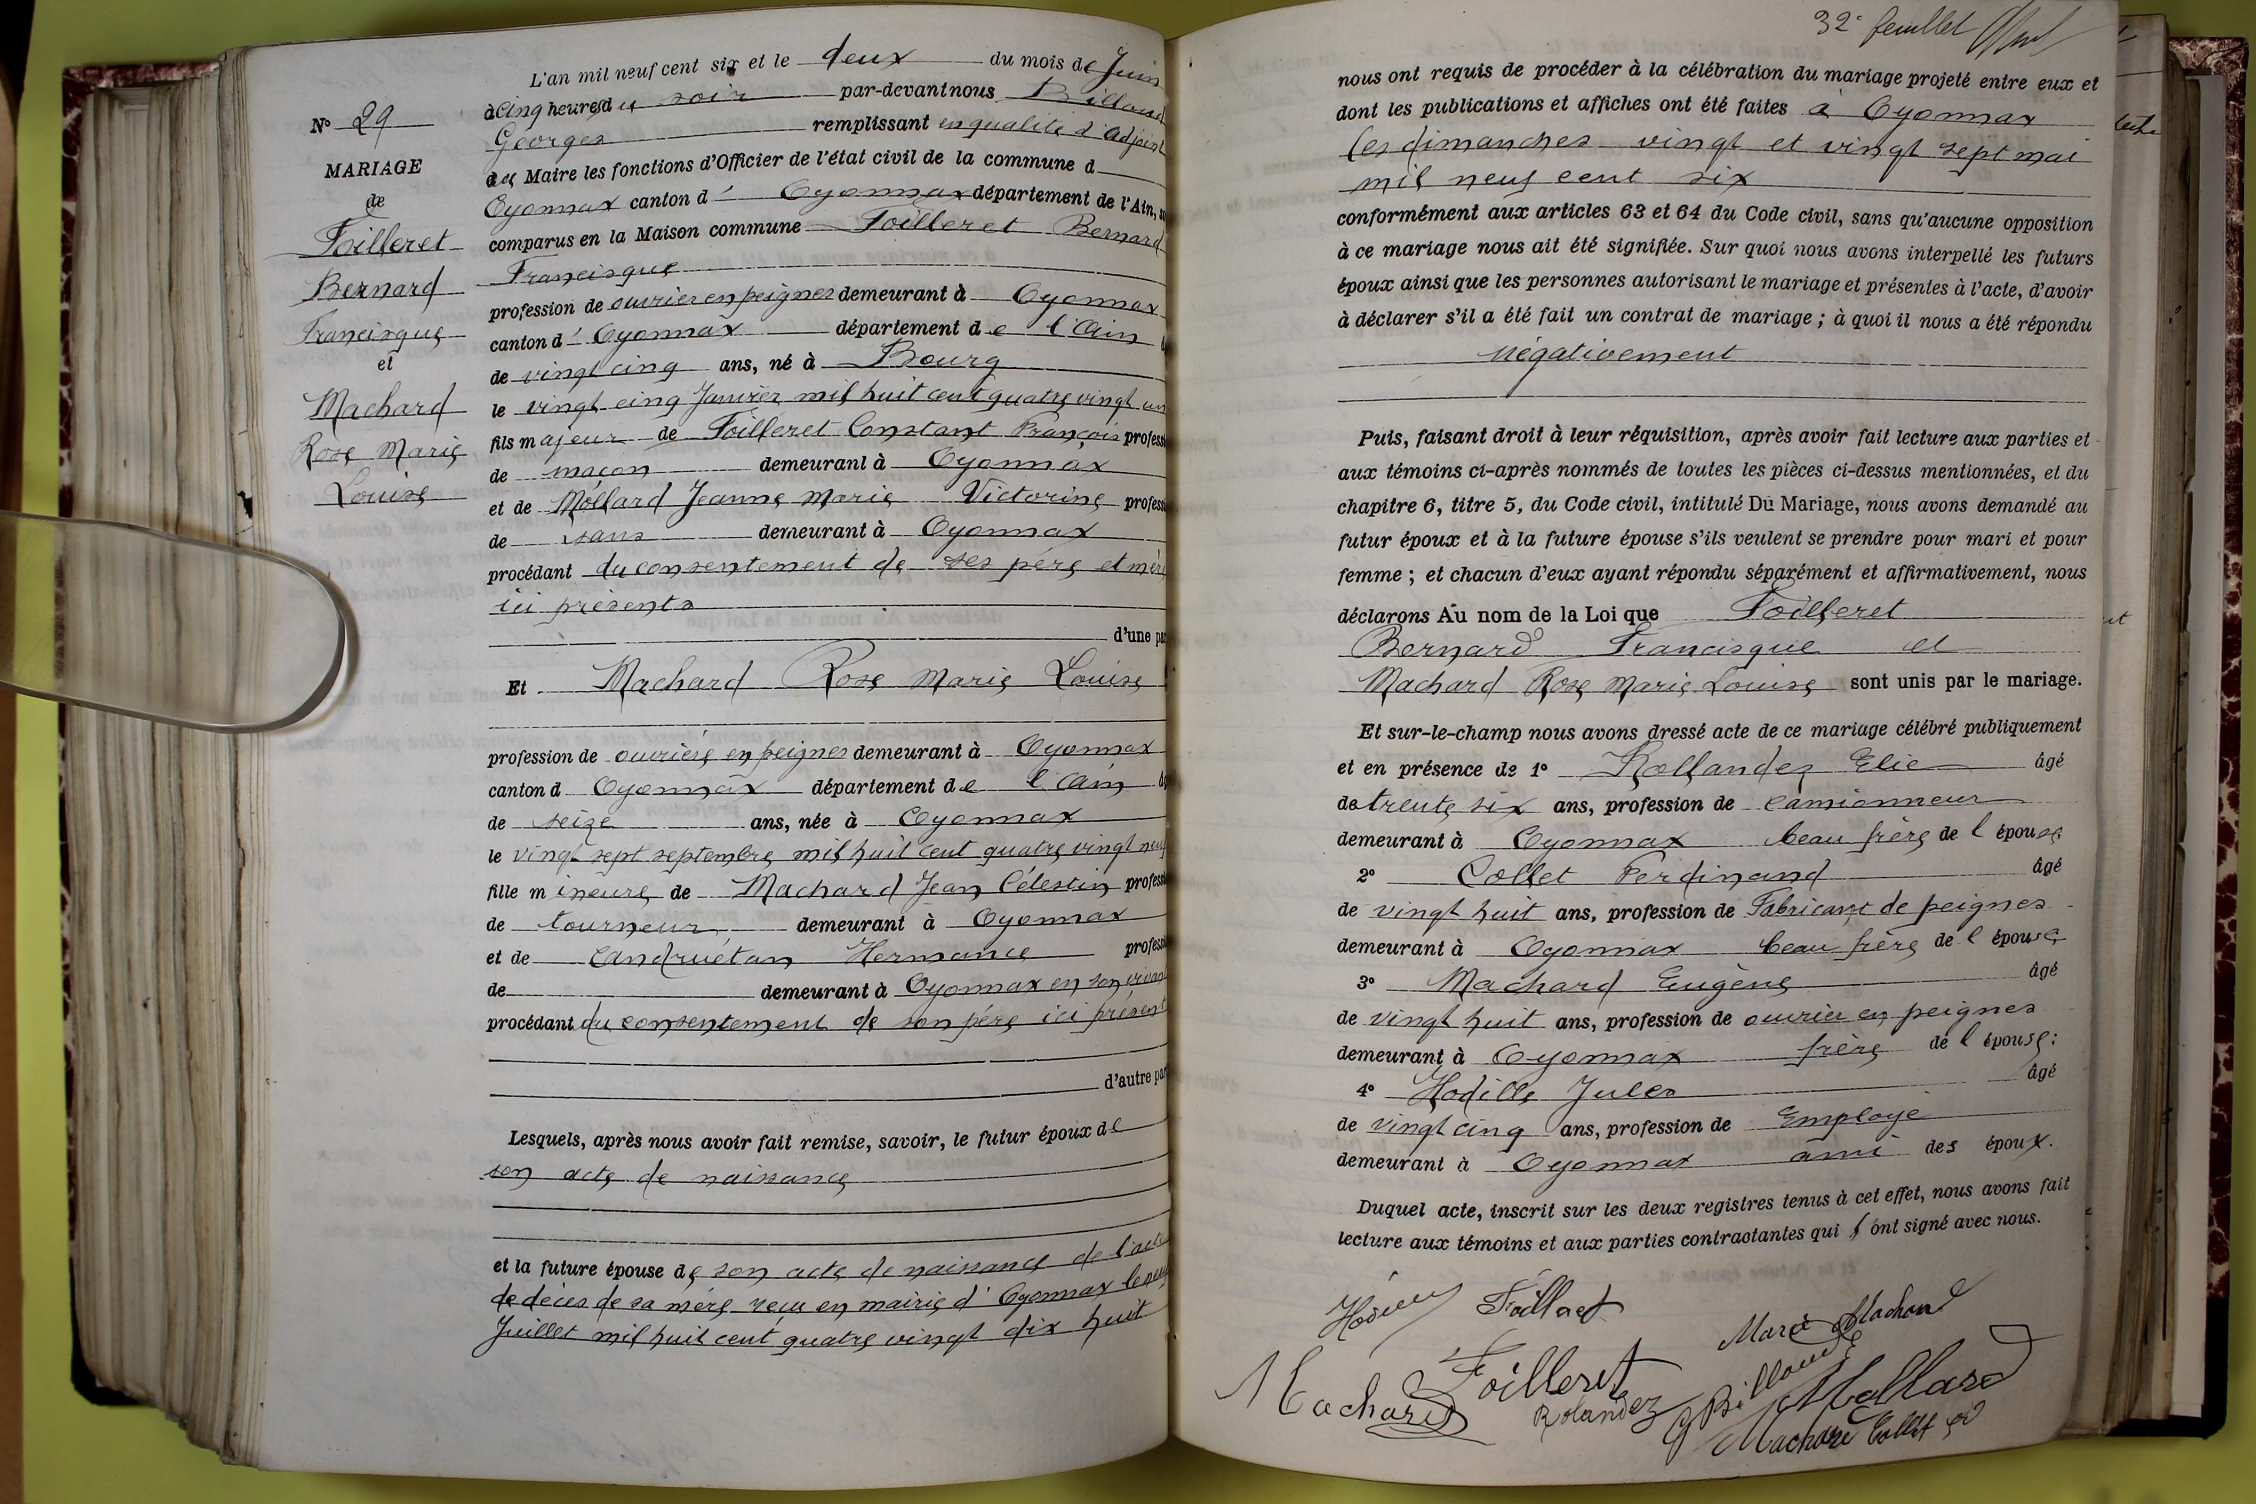 N° 29
MARIAGE
de
Foilleret
Bernard
Francisque
et
Machard
Rose Marie
Louise
L'an mil neuf cent six et le deux du mois de Juin
à cinq heures du soir par-devant nous Billoud
Georges remplissant en qualité d'adjoint
au Maire les fonctions d'Officier de l'état civil de la commune d
Oyonnax canton d' Oyonnax département de l'Ain,
comparus en la Maison commune Foilleret Bernard
Francisque
profession de ouvrier en peignes demeurant à Oyonnax
canton d' Oyonnax département de l'Ain
de vingt cinq ans, né à Bourg
le vingt cinq Janvier mil huit cent quatre vingt un
fils majeur de Foilleret Constant François profess
de maçon demeurant à Oyonnax
et de Mollard Jeanne Marie Victorine profess
de sans demeurant à Oyonnax
procédant du consentement de ses père et mère
ici présents
d'une pa
Et Machard Rose Marie Louise
profession de ouvrière en peignes demeurant à Oyonnax
canton d Oyonnax département de l'Ain
de seize ans, née à Oyonnax
le vingt sept septembre mil huit cent quatre vingt neuf
fille mineure de Machard Jean Célestin profess
de tourneur demeurant à Oyonnax
et de Andruétan Hermance profess
de demeurant à Oyonnax en son vivant
procédant du consentement de son père ici présent
d'autre par
Lesquels, après nous avoir fait remise, savoir, le futur époux de
son acte de naissance
et la future épouse de son acte de naissance de l'acte
de décès de sa mère reçu en mairie d'Oyonnax le neuf
Juillet mil huit cent quatre vingt dix huit
32e feuillet
nous ont requis de procéder à la célébration du mariage projeté entre eux et
dont les publications et affiches ont été faites à Oyonnax
les dimanches vingt et vingt sept mai
mil neuf cent six
conformément aux articles 63 et 64 du Code civil, sans qu'aucune opposition
à ce mariage nous ait été signifiée. Sur quoi nous avons interpellé les futurs
époux ainsi que les personnes autorisant le mariage et présentes à l'acte, d'avoir
à déclarer s'il a été fait un contrat de mariage ; à quoi il nous a été répondu
négativement
Puis, faisant droit à leur réquisition, après avoir fait lecture aux parties et
aux témoins ci-après nommés de toutes les pièces ci-dessus mentionnées, et du
chapitre 6, titre 5, du Code civil, intitulé Du Mariage, nous avons demandé au
futur époux et à la future épouse s'ils veulent se prendre pour mari et pour
femme ; et chacun d'eux ayant répondu séparément et affirmativement, nous
déclarons Au nom de la Loi que Foilleret
Bernard Francisque et
Machard Rose Marie Louise sont unis par le mariage.
Et sur-le-champ nous avons dressé acte de ce mariage célébré publiquement
et en présence de 1° Rollandez Elie âgé
de trente six ans, profession de camionneur
demeurant à Oyonnax beau frère de l'épouse
2° Collet Ferdinand âgé
de vingt huit ans, profession de Fabricant de peignes
demeurant à Oyonnax beau frère de l'épouse
3° Machard Eugène âgé
de vingt huit ans, profession de ouvrier en peignes
demeurant à Oyonnax frère de l'épouse :
4° Hodille Jules âgé
de vingt cinq ans, profession de Employé
demeurant à Oyonnax ami des époux.
Duquel acte, inscrit sur les deux registres tenus à cet effet, nous avons fait
lecture aux témoins et aux parties contractantes qui ont signé avec nous.
Foilleret
Marie Machard
Machard Foilleret Rolandez G Billoud Mollard
Machard Collet